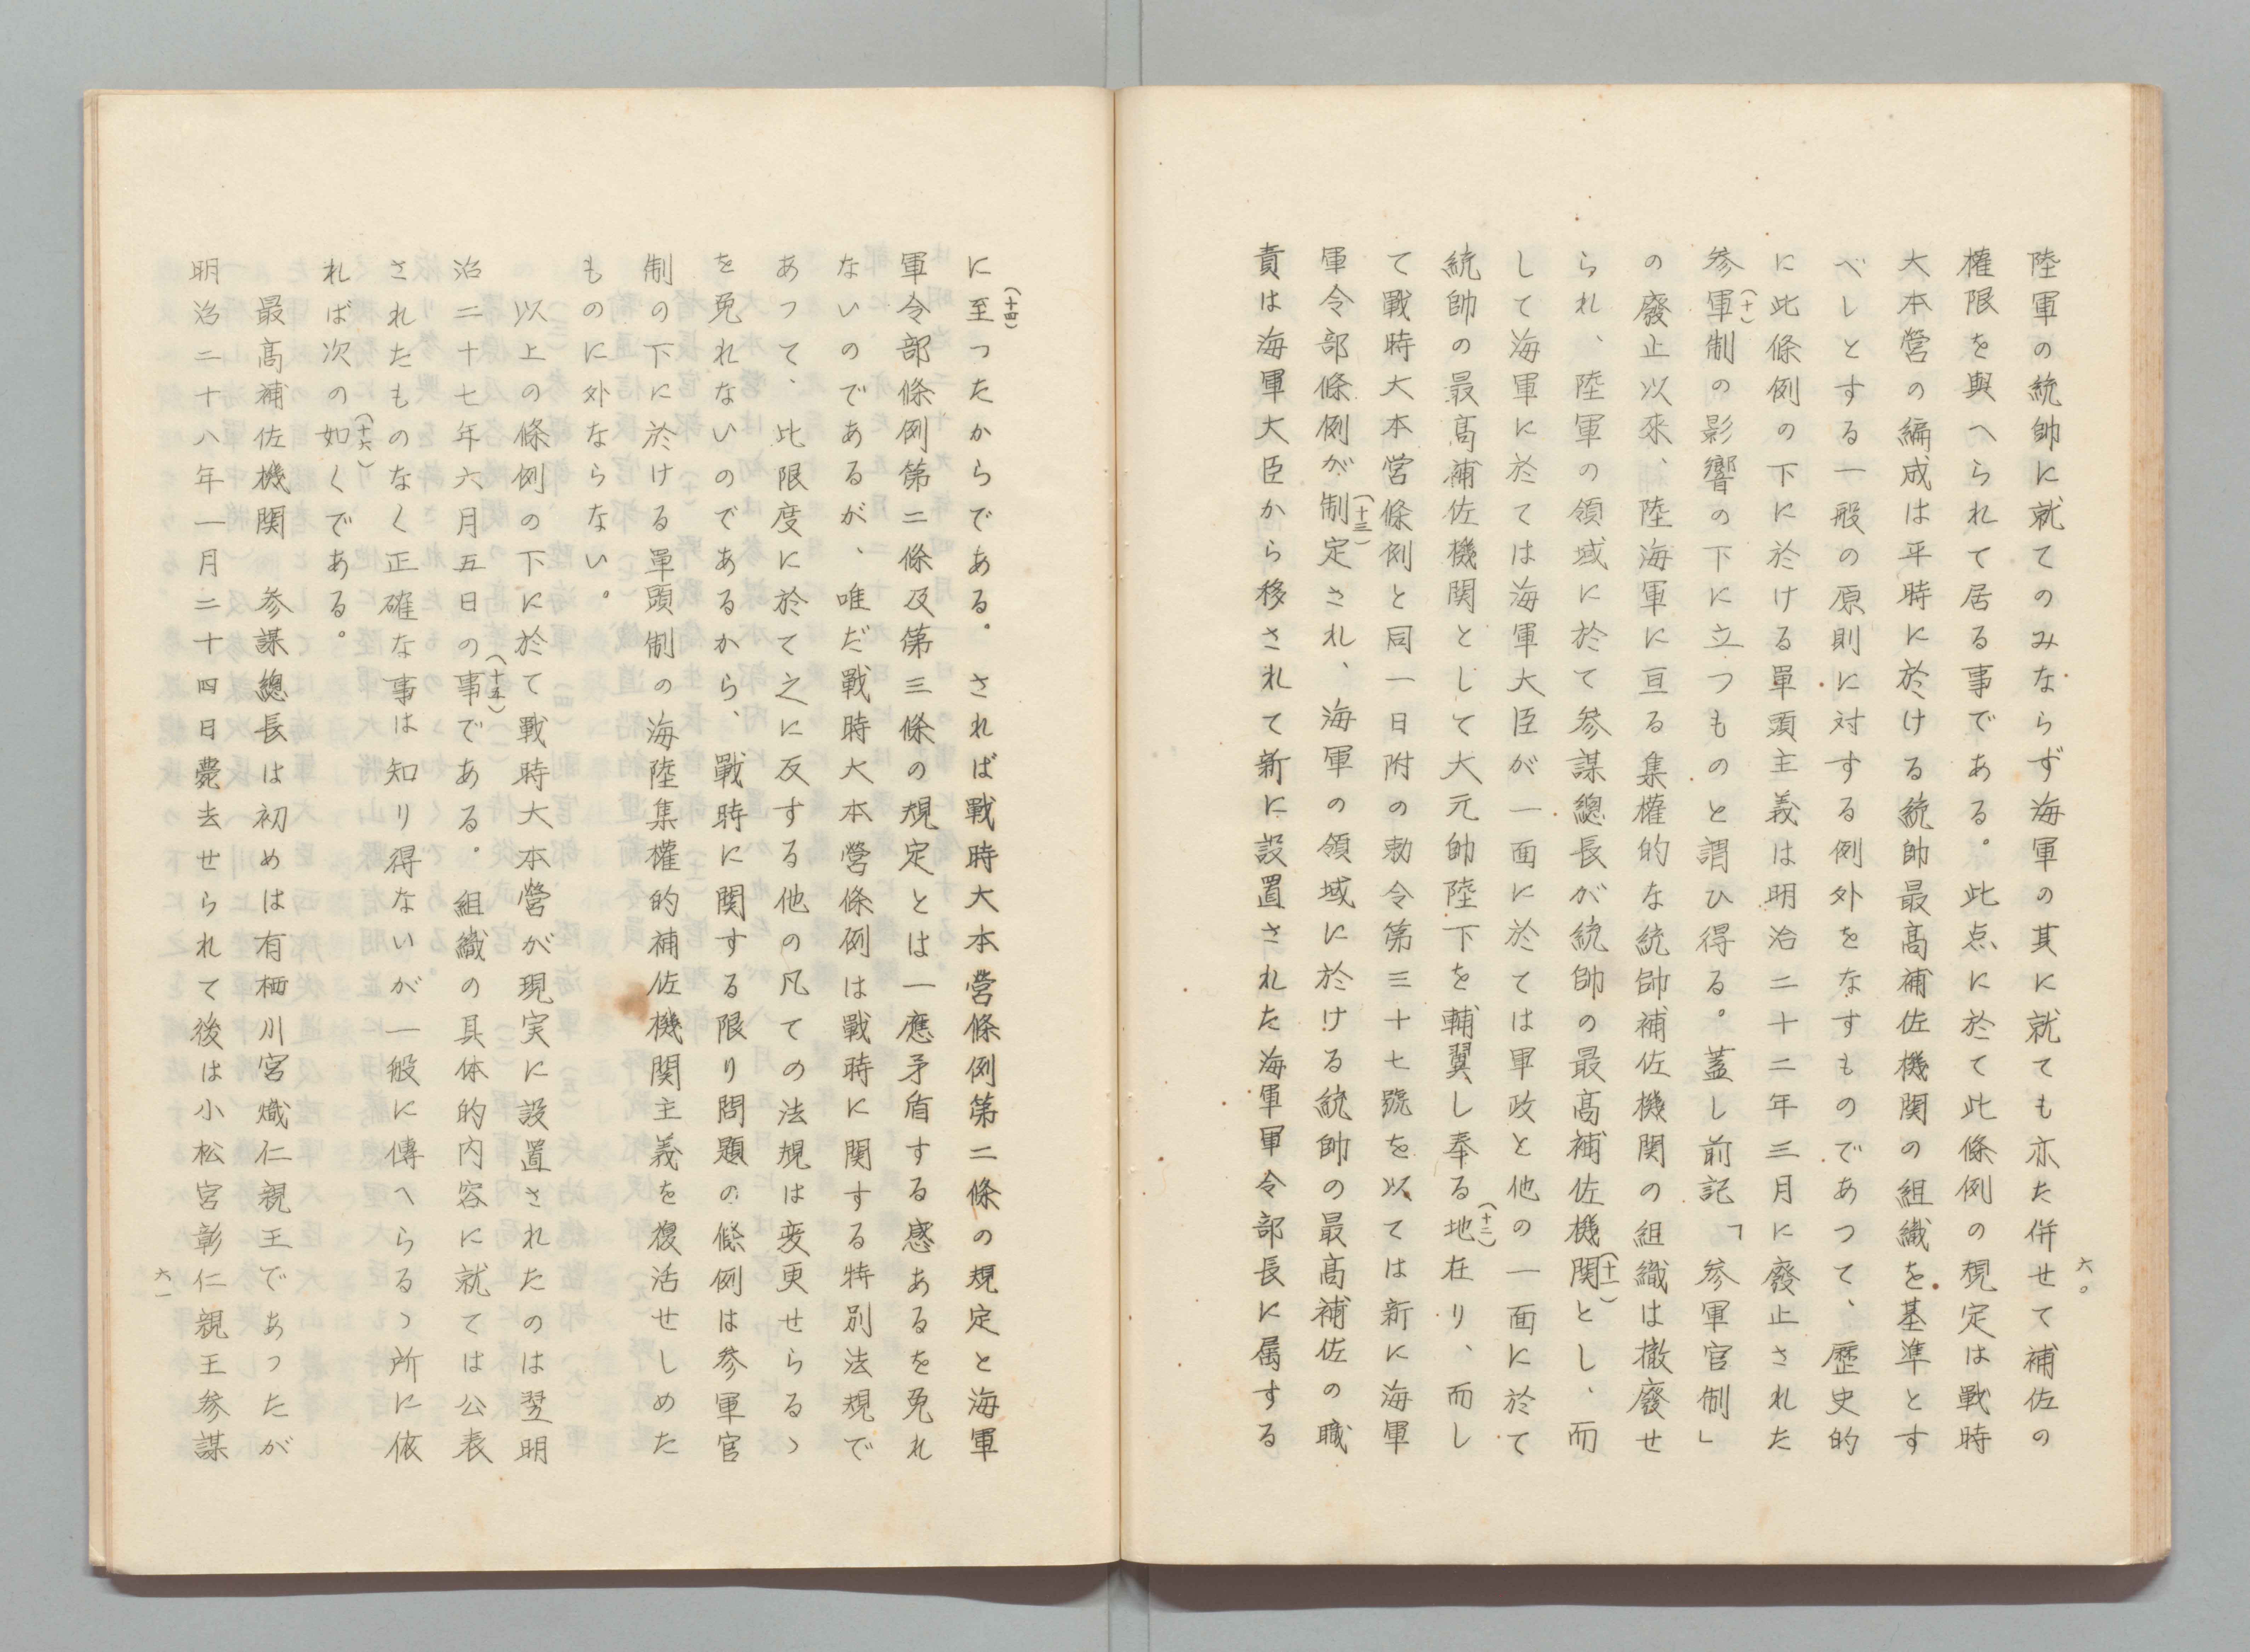 六〇
陸軍の統帥に就てのみならず海軍の其に就ても亦た併せて補佐の
権限を與へられて居る事である。此点に於て此條例の規定は戰時
大本營の編成は平時に於ける統帥最高補佐機関の組織を基準とす
べしとする一般の原則に対する例外をなすものであつて、歴史的
に此條例の下に於ける單頭主義は明治二十二年三月に廢止された
参軍(十)制の影響の下に立つものと謂ひ得る。蓋し前記「参軍官制」
の廢止以來、陸海軍に亘る集權的な統帥補佐機関の組織は撤廢せ
られ、陸軍の領域に於て参謀總長が統帥の最高補佐機関(十一)とし、而
して海軍に於ては海軍大臣が一面に於ては軍政と他の一面に於て
統帥の最高補佐機関として大元帥陛下を輔翼し奉る地(十二)在り、而し
て戰時大本営條例と同一日附の勅令第三十七號を以ては新に海軍
軍令部條例が制(十三)定され、海軍の領域に於ける統帥の最高補佐の職
責は海軍大臣から移されて新に設置された海軍軍令部長に属する
に至(十四)つたからである。されば戰時大本営條例第二條の規定と海軍
軍令部條例第二條及第三條の規定とは一應矛盾する感あるを免れ
ないのであるが、唯だ戰時大本營條例は戰時に関する特別法規で
あつて、此限度に於て之に反する他の凡ての法規は変更せらるゝ
を免れないのであるから、戰時に関する限り問題の條例は参軍官
制の下に於ける單頭制の海陸集權的補佐機関主義を復活せしめた
ものに外ならない。
以上の條例の下に於て戰時大本營が現実に設置されたのは翌明
治二十七年六月五日の事(十五)である。組織の具体的内容に就ては公表
されたものなく正確な事は知り得ないが一般に傳へらるゝ所に依
れば次の如(十六)くである。
最高補佐機関　参謀總長は初めは有栖川宮熾仁親王であつたが
明治二十八年一月二十四日薨去せられて後は小松宮彰仁親王参謀
六一